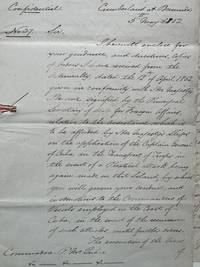 Confidential
Cumberland at Bermuda
5 May 1852
No 27. Sir,
I herewith enclose for
your guidance and direction, Copies
of Orders I have received from the
Admiralty, dated the 12th of April 1852,
given in conformity with Her Majesty's
Pleasure, signified by the Principal
Secretary of State for Foreign Affairs
relative to the assistance which is
to be afforded by Her Majesty's Ships
on the application of the Captain General
of Cuba, in the Transport of Troops in
the event of a Piratical attack being
again made on that Island, by which
you will govern your conduct, and
instructions to the Commanders of
Vessels employed on the Coast of
Cuba, in the event of the occurrence
of such attacks until further orders.
The execution of the
Commodore